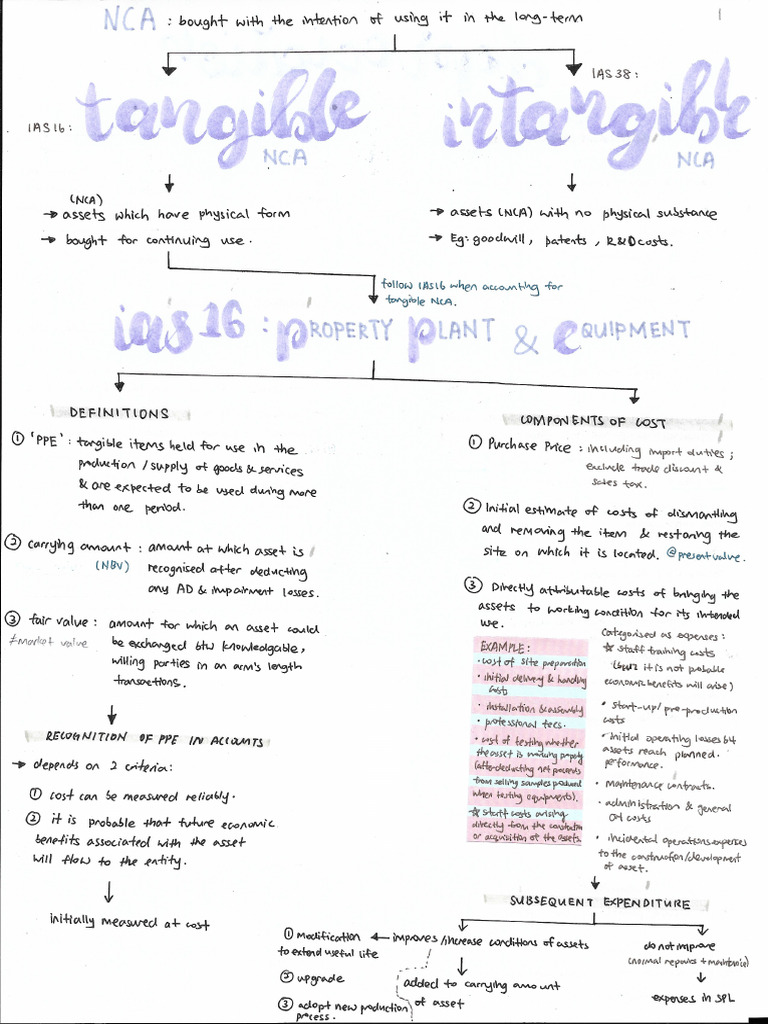 NCA : bought with the intention of using it in the long-term
1
IAS16: tangible
NCA
IAS 38:
intangible
NCA
(NCA)
→ assets which have physical form
→ bought for continuing use.
→ assets (NCA) with no physical substance
→ Eg: goodwill, patents, R&D costs.
follow IAS16 when accounting for
tangible NCA.
ias 16 : PROPERTY PLANT & EQUIPMENT
DEFINITIONS
① 'PPE' : tangible items held for use in the
production / supply of goods & services
& are expected to be used during more
than one period.
② carrying amount : amount at which asset is
(NBV) recognised after deducting
any AD & impairment losses.
③ fair value : amount for which an asset could
≠market value be exchanged btw knowledgable,
willing parties in an arm's length
transactions.
RECOGNITION OF PPE IN ACCOUNTS
→ depends on 2 criteria:
① cost can be measured reliably.
② it is probable that future economic
benefits associated with the asset
will flow to the entity.
initially measured at cost
COMPONENTS OF COST
① Purchase Price : including import duties;
exclude trade discount &
sales tax.
② Initial estimate of costs of dismantling
and removing the item & restoring the
site on which it is located. @present value.
③ Directly attributable costs of bringing the
assets to working condition for its intended
use.
EXAMPLE:
· cost of site preparation
· initial delivery & handling
costs
· installation & assembly
· professional fees.
· cost of testing whether
the asset is working properly
(after deducting net proceeds
from selling samples produced
when testing equipments).
☆ staff costs arising
directly from the construction
or acquisition of the assets.
Categorised as expenses:
☆ staff training costs
(it is not probable
economic benefits will arise)
· start-up/pre-production
costs
· initial operating losses b4
assets reach planned
performance.
· maintenance contracts.
· administration & general
OH costs
· incidental operations expenses
to the construction/development
of asset.
SUBSEQUENT EXPENDITURE
① modification ← improves/increase conditions of assets
to extend useful life
② upgrade
③ adopt new production
process.
added to carrying amount
of asset
do not improve
(normal repairs + maintenance)
expenses in SPL